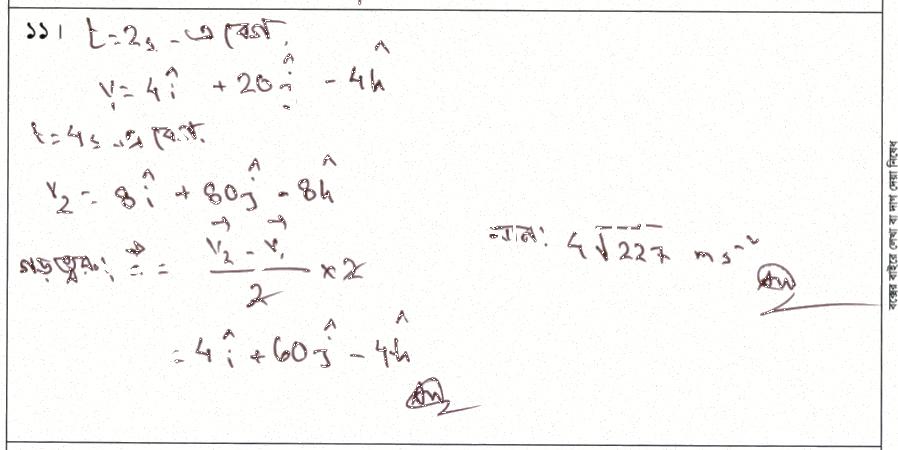 ১১। t=2s -এ বেগ,
v₁ = 4î + 20ĵ - 4k̂
t=4s -এ বেগ,
v₂ = 8î + 80ĵ - 8k̂
গড় ত্বরণ, = (v₂⃗ - v₁⃗)/2 × 2
= 4î + 60ĵ - 4k̂
Ans
মান: 4√227 ms⁻²
Ans
বক্সের বাইরে লেখা বা দাগ দেয়া নিষেধ